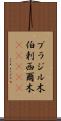 ブラジル木
伯剌西爾木